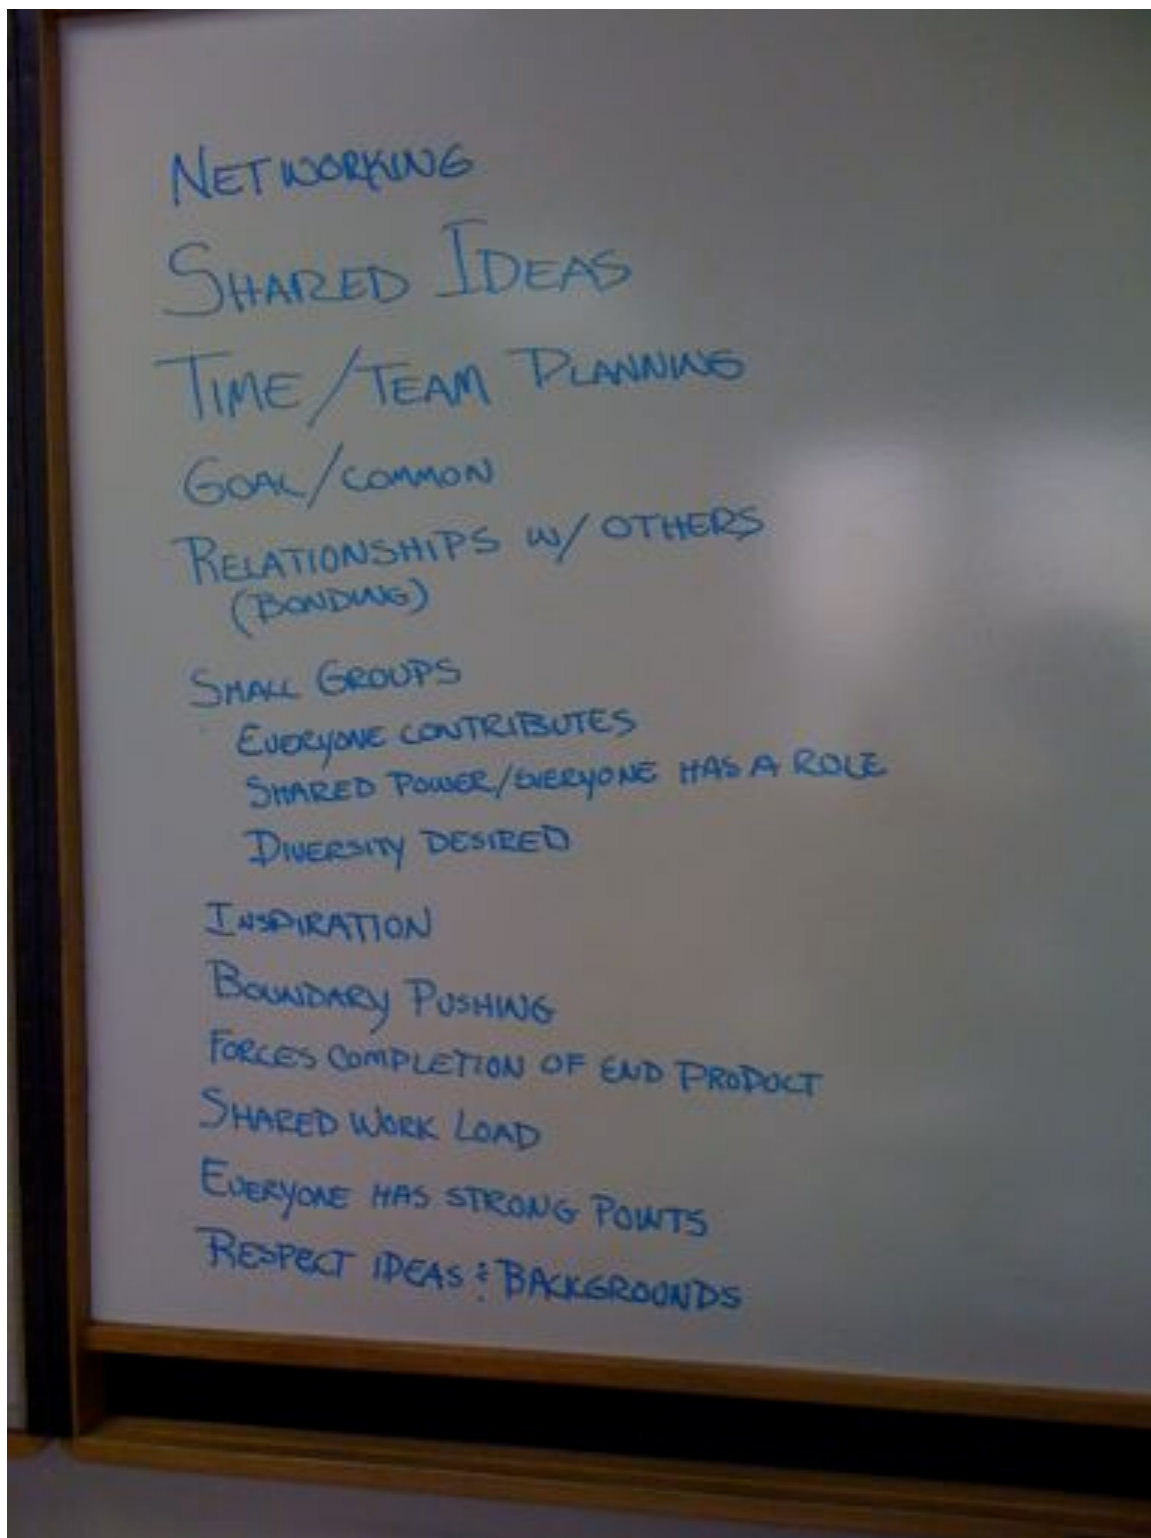 NETWORKING
SHARED IDEAS
TIME/TEAM PLANNING
GOAL/COMMON
RELATIONSHIPS W/ OTHERS
(BONDING)
SMALL GROUPS
EVERYONE CONTRIBUTES
SHARED POWER/EVERYONE HAS A ROLE
DIVERSITY DESIRED
INSPIRATION
BOUNDARY PUSHING
FORCES COMPLETION OF END PRODUCT
SHARED WORK LOAD
EVERYONE HAS STRONG POINTS
RESPECT IDEAS & BACKGROUNDS